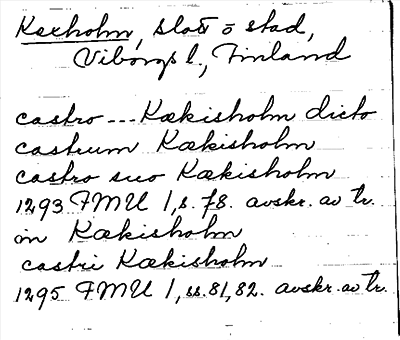 Kexholm, slott o stad,
Viborgs l., Finland
castro --- Kækisholm dicto
castrum Kækisholm
castro suo Kækisholm
1293 FMU 1, s. 78. avskr. av tr.
in Kækisholm
castri Kækisholm
1295 FMU 1, ss. 81, 82. avskr. av tr.